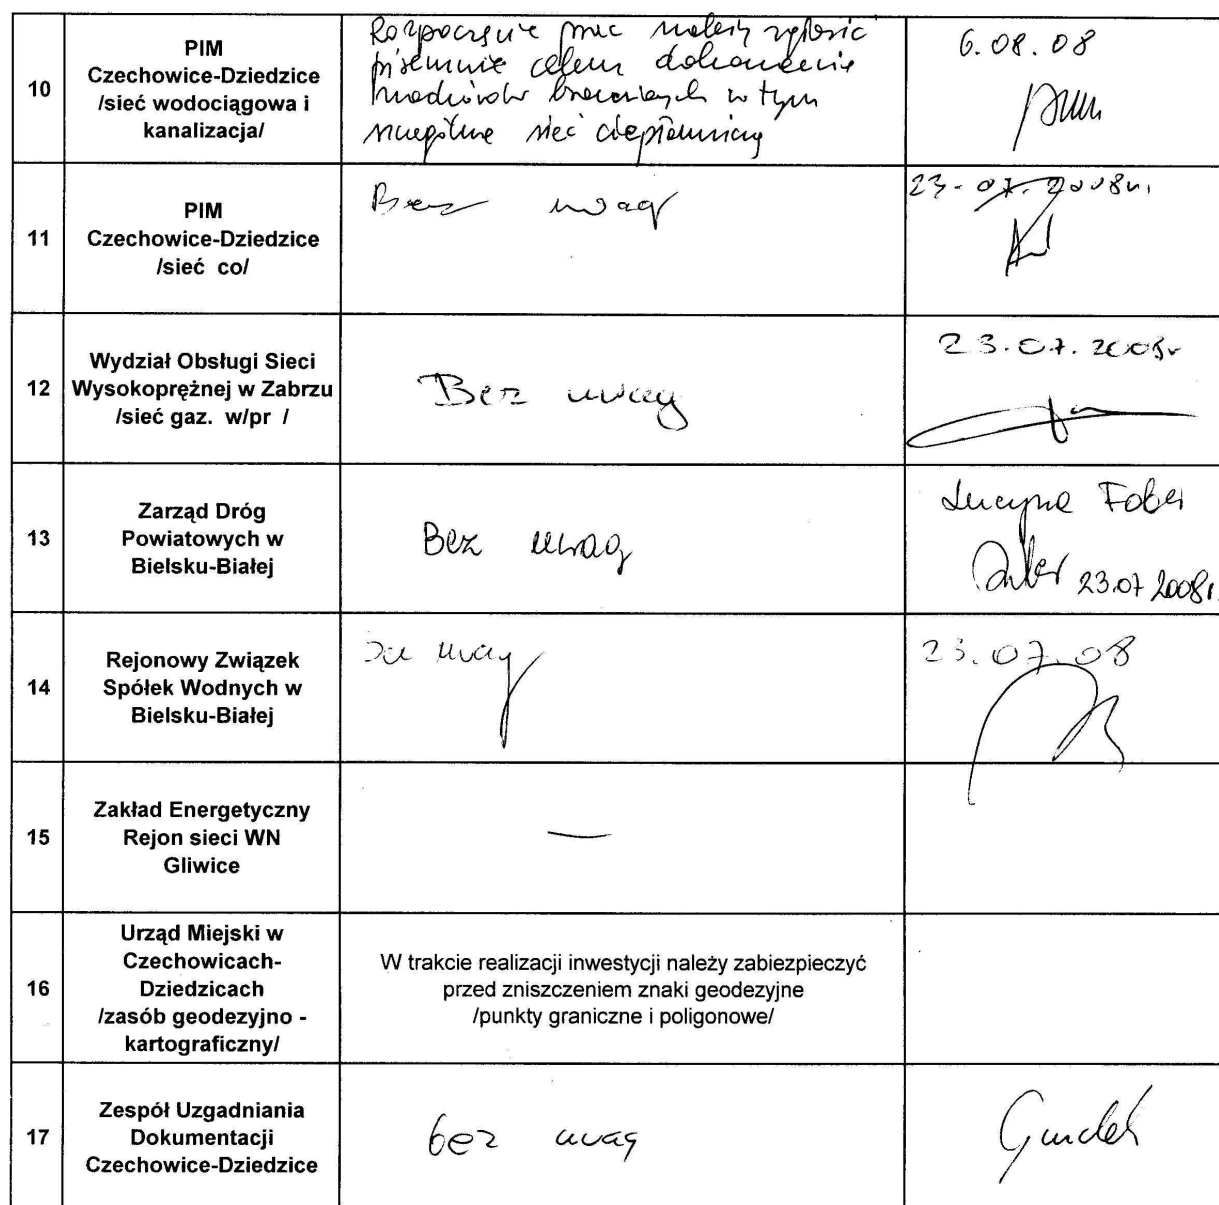 10
PIM
Czechowice-Dziedzice
/sieć wodociągowa i
kanalizacja/
Rozpoczęcie prac należy zgłosić
pisemnie celem dokonania
nadzorów branżowych w tym
szczególnie sieć ciepłowniczą
6.08.08
11
PIM
Czechowice-Dziedzice
/sieć co/
Bez uwag
23.07.2008r.
12
Wydział Obsługi Sieci
Wysokoprężnej w Zabrzu
/sieć gaz. w/pr /
Bez uwag
23.07.2008r
13
Zarząd Dróg
Powiatowych w
Bielsku-Białej
Bez uwag
Lucyna Fober
23.07 2008r.
14
Rejonowy Związek
Spółek Wodnych w
Bielsku-Białej
uwag
23.07.08
15
Zakład Energetyczny
Rejon sieci WN
Gliwice
—
16
Urząd Miejski w
Czechowicach-
Dziedzicach
/zasób geodezyjno -
kartograficzny/
W trakcie realizacji inwestycji należy zabiezpieczyć
przed zniszczeniem znaki geodezyjne
/punkty graniczne i poligonowe/
17
Zespół Uzgadniania
Dokumentacji
Czechowice-Dziedzice
bez uwag